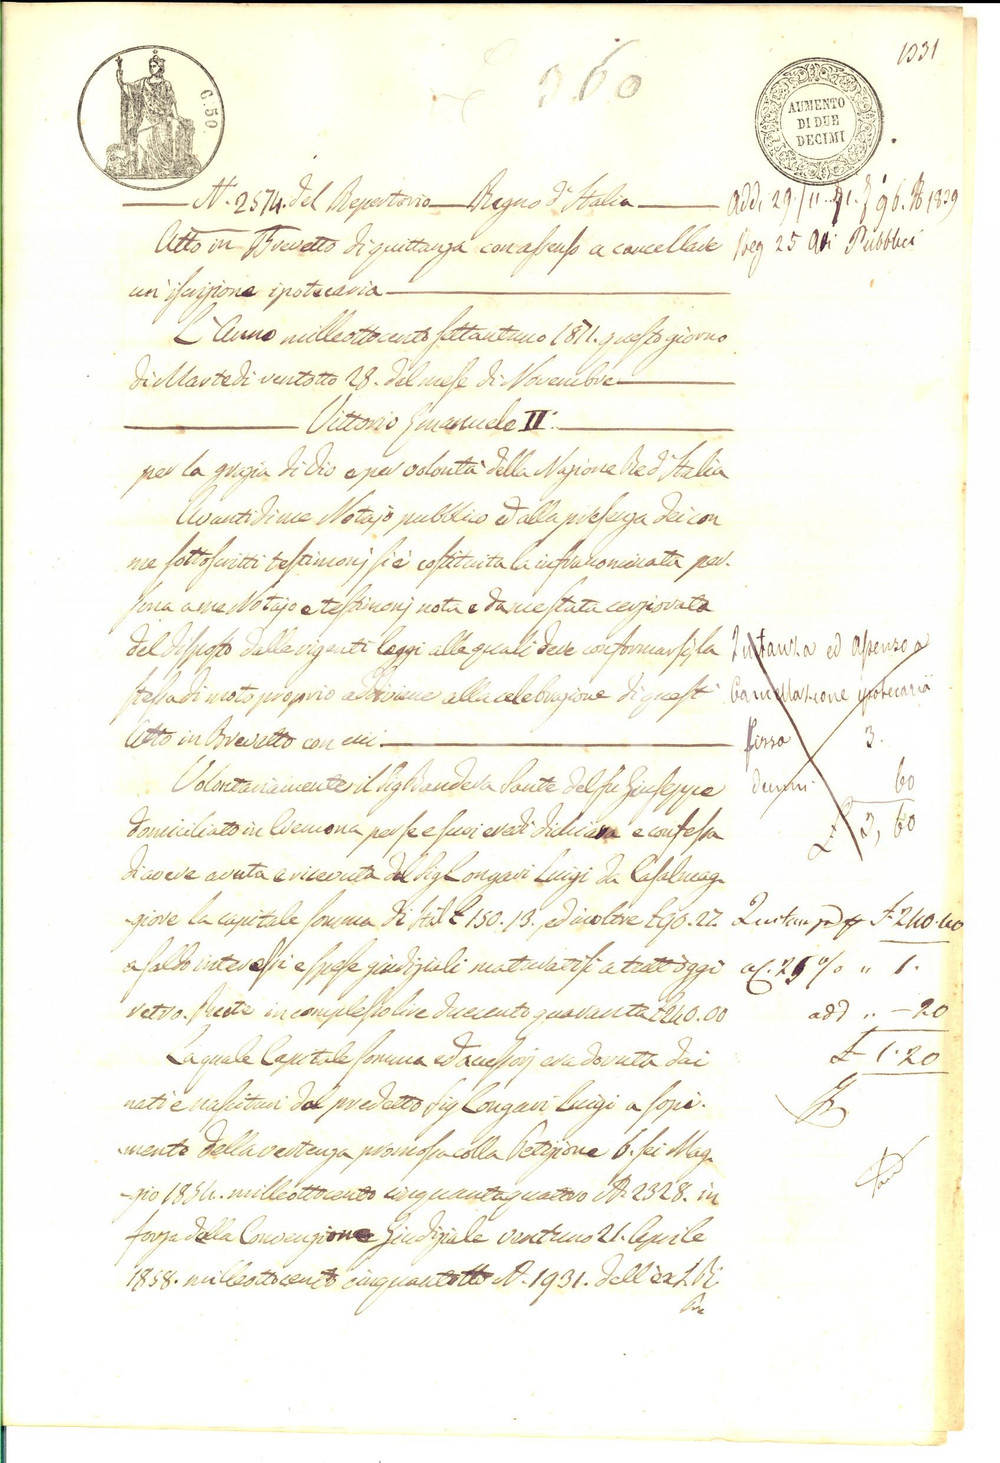 1931
360
C. 50.
AUMENTO
DI DUE
DECIMI
N. 2574. del Repertorio Regno d'Italia
Addi 29/11. 71.
Atto in Brevetto di quittanza con assenso a cancellare
Reg 25 Atti Pubblici
un'iscrizione ipotecaria
L'Anno milleottocento settantuno 1871. questo giorno
di Martedi ventotto 28. del mese di Novembre
Vittorio Emanuele II.
per la grazia di Dio e per volontà della Nazione Re d'Italia
Avanti di me Notajo pubblico ed alla presenza dei con
me sottoscritti testimonj si è costituita la infranominata per-
sona a me Notajo e testimonj nota e da me stata cerziorata
del disposto dalle vigenti leggi alle quali deve conformarsi, la
Quitanza ed assenso a
stessa di moto proprio addiviene alla celebrazione di questi
Cancellazione ipotecaria
Atto in Brevetto con cui
fisso 3.
Volontariamente il Sig Bandera Sante del fu Giuseppe
decimi 60
domiciliato in Cremona per se e suoi eredi dichiara e confessa
£ 3,60
di avere avuta e ricevuta dal Sig Longari Luigi da Casalmag-
-giore la capitale somma di Ital £ 150. 13. ed inoltre £ 90. 27.
£ 240.40
a saldo interessi e spese giudiziali maturatisi a tutt'oggi
25 % " 1.
vetro. Recte in complesso lire duecento quaranta £ 240.00
add " - 20
La quale Capitale somma ed accessorj era dovuta dai
£ 1.20
nati e nascituri dal predetto Sig Longari Luigi a sopi-
-mento della vertenza promossa colla Petizione 6. sei Mag-
-gio 1854. milleottocento cinquantaquattro N. 2328. in
forza della Convenzione Giudiziale ventuno 21. Aprile
1858. milleottocento cinquantotto N. 1931. dell'ex I. R.